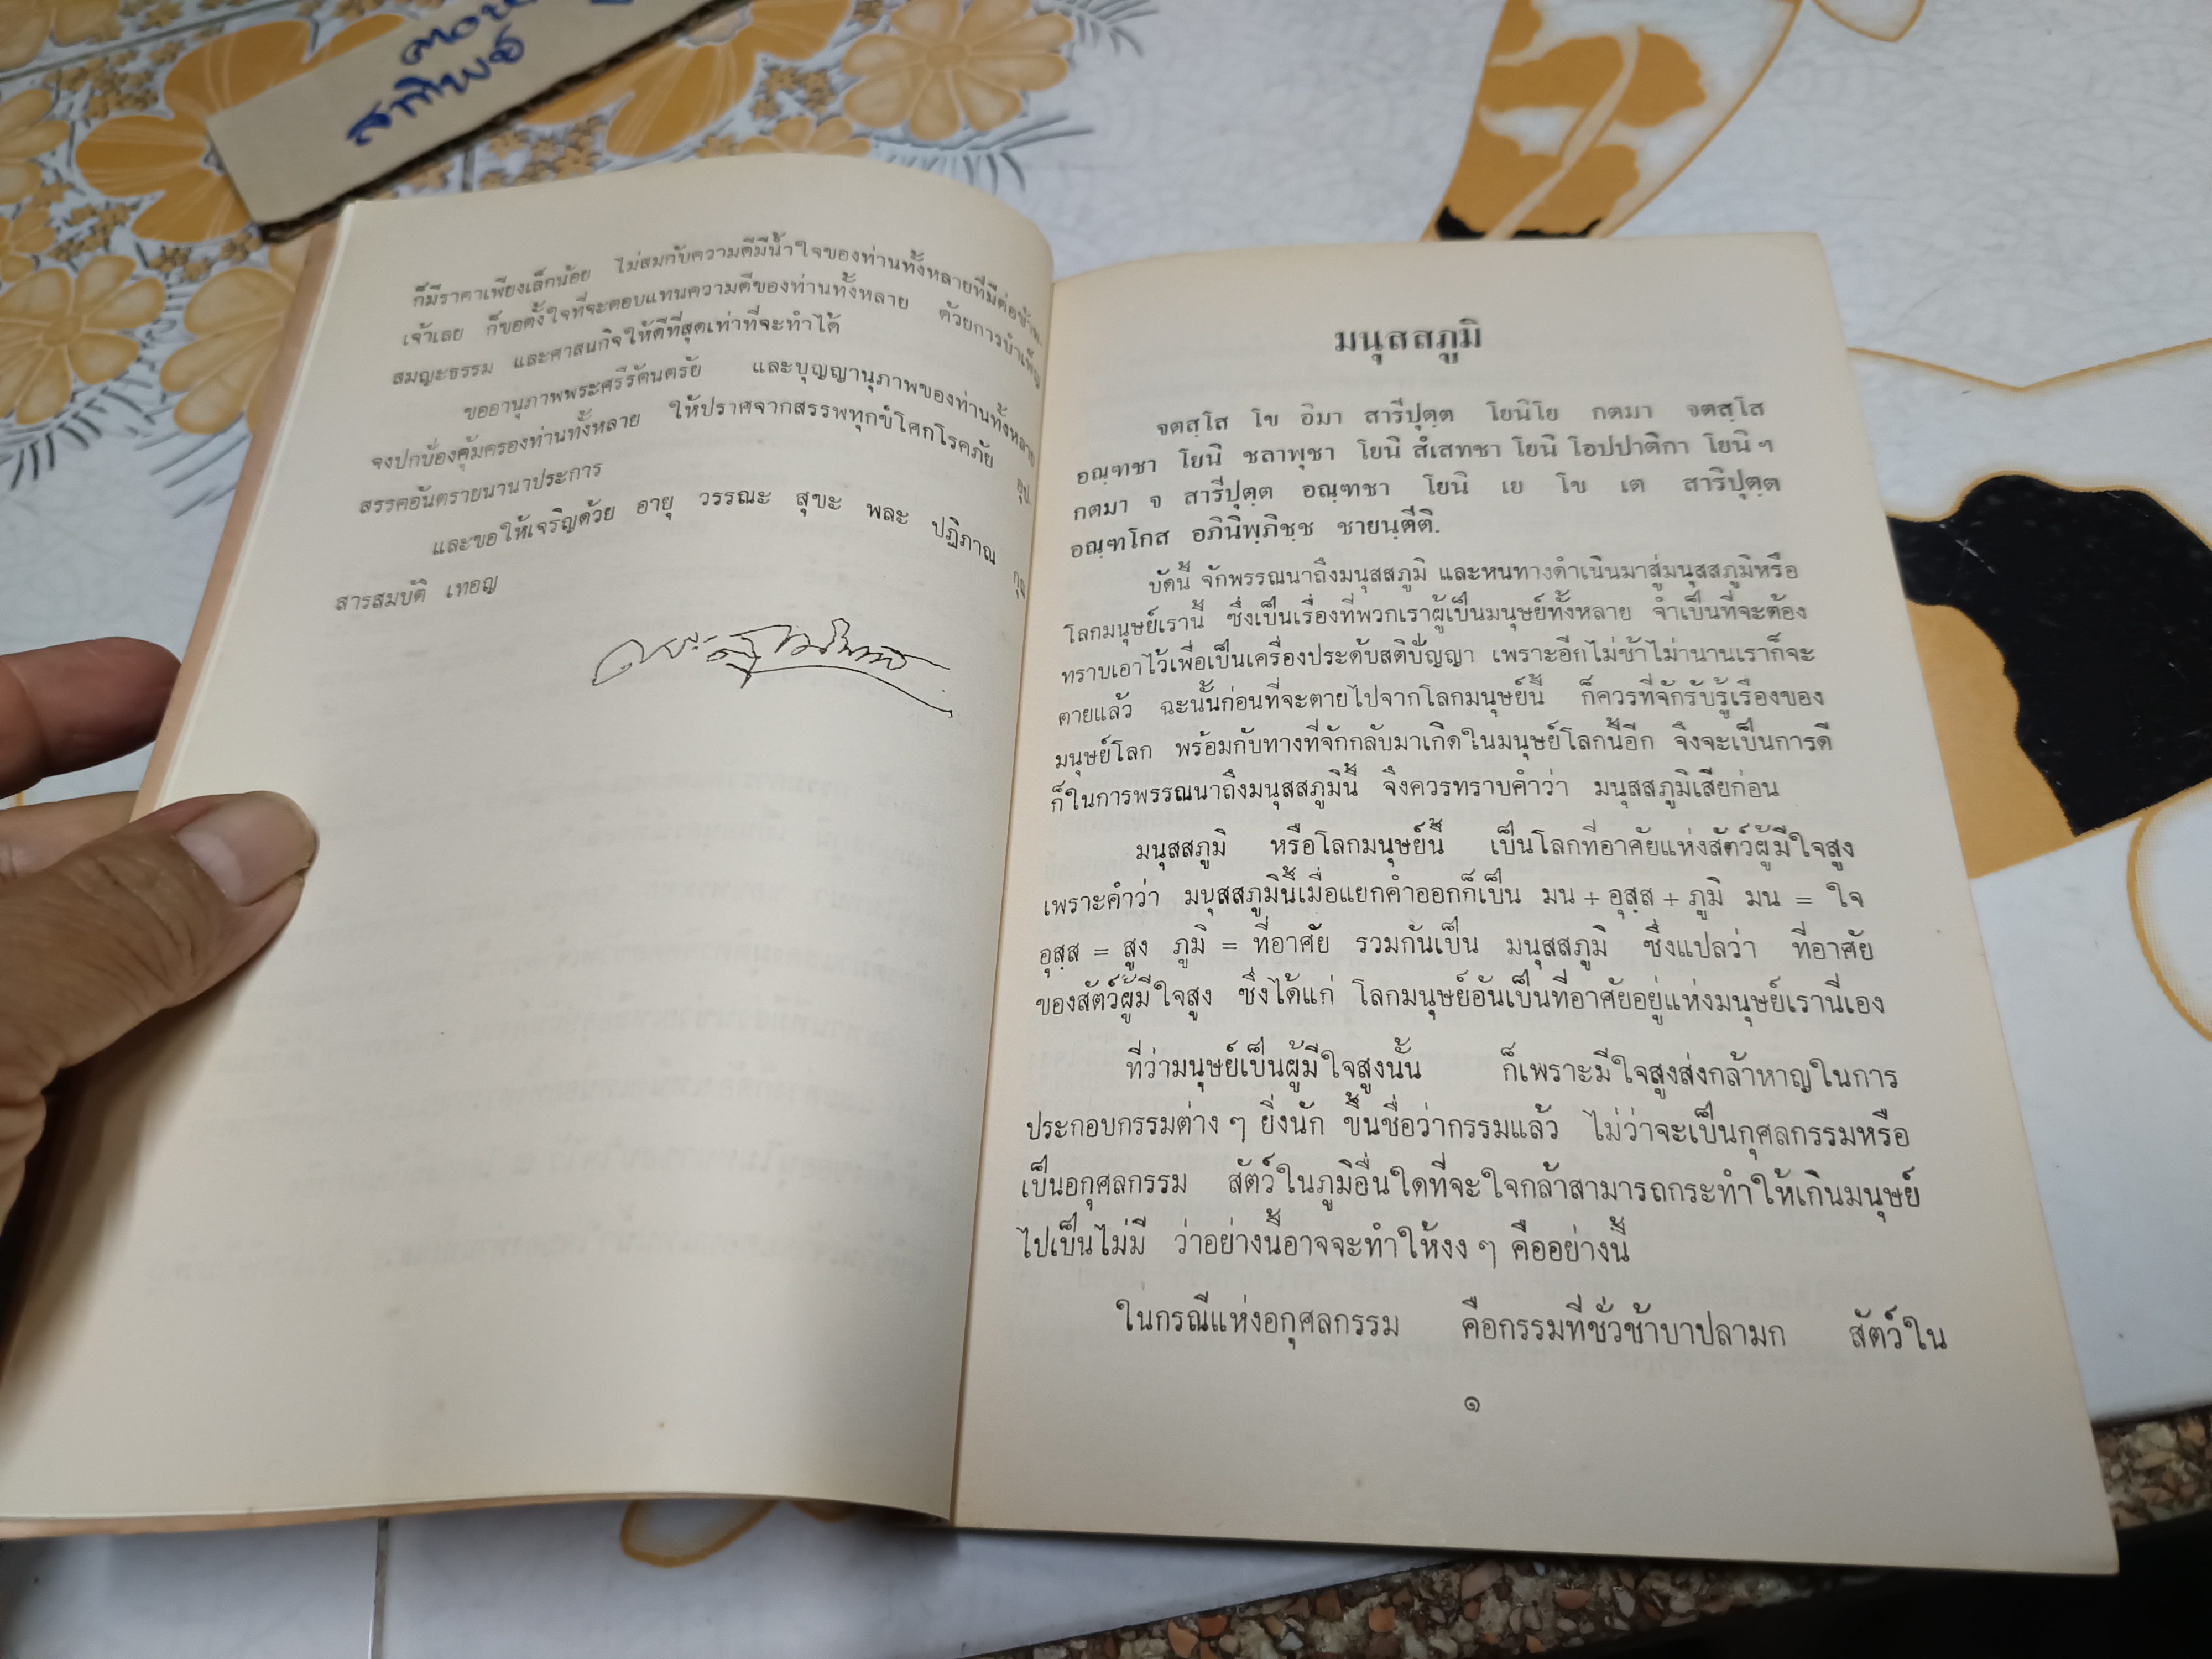 สาทิพย์
ก็มีราคาเพียงเล็กน้อย ไม่สมกับความดีมีน้ำใจของท่านทั้งหลายที่มีต่อข้าพ-
เจ้าเลย ก็ขอตั้งใจที่จะตอบแทนความดีของท่านทั้งหลาย ด้วยการบำเพ็ญ
สมญะธรรม และศาสนกิจให้ดีที่สุดเท่าที่จะทำได้
ขออานุภาพพระศรีรัตนตรัย และบุญญานุภาพของท่านทั้งหลาย
จงปกป้องคุ้มครองท่านทั้งหลาย ให้ปราศจากสรรพทุกข์โศกโรคภัย อุป-
สรรคอันตรายนานาประการ
และขอให้เจริญด้วย อายุ วรรณะ สุขะ พละ ปฏิภาณ
สารสมบัติ เทอญ
มนุสสภูมิ
จตสฺโส โข อิมา สารีปุตฺต โยนิโย กตมา จตสฺโส
อณฺฑชา โยนิ ชลาพุชา โยนิ สํเสทชา โยนิ โอปปาติกา โยนิ ฯ
กตมา จ สารีปุตฺต อณฺฑชา โยนิ เย โข เต สารีปุตฺต
อณฺฑโกส อภินิพฺภิชฺช ชายนฺตีติ.
บัดนี้ จักพรรณนาถึงมนุสสภูมิ และหนทางดำเนินมาสู่มนุสสภูมิหรือ
โลกมนุษย์เรานี้ ซึ่งเป็นเรื่องที่พวกเราผู้เป็นมนุษย์ทั้งหลาย จำเป็นที่จะต้อง
ทราบเอาไว้เพื่อเป็นเครื่องประดับสติปัญญา เพราะอีกไม่ช้าไม่นานเราก็จะ
ตายแล้ว ฉะนั้นก่อนที่จะตายไปจากโลกมนุษย์นี้ ก็ควรที่จักรับรู้เรื่องของ
มนุษย์โลก พร้อมกับทางที่จักกลับมาเกิดในมนุษย์โลกนี้อีก จึงจะเป็นการดี
ก็ในการพรรณนาถึงมนุสสภูมินี้ จึงควรทราบคำว่า มนุสสภูมิเสียก่อน
มนุสสภูมิ หรือโลกมนุษย์นี้ เป็นโลกที่อาศัยแห่งสัตว์ผู้มีใจสูง
เพราะคำว่า มนุสสภูมินี้เมื่อแยกคำออกก็เป็น มน + อุสฺส + ภูมิ มน = ใจ
อุสฺส = สูง ภูมิ = ที่อาศัย รวมกันเป็น มนุสสภูมิ ซึ่งแปลว่า ที่อาศัย
ของสัตว์ผู้มีใจสูง ซึ่งได้แก่ โลกมนุษย์อันเป็นที่อาศัยอยู่แห่งมนุษย์เรานี่เอง
ที่ว่ามนุษย์เป็นผู้มีใจสูงนั้น ก็เพราะมีใจสูงส่งกล้าหาญในการ
ประกอบกรรมต่าง ๆ ยิ่งนัก ขึ้นชื่อว่ากรรมแล้ว ไม่ว่าจะเป็นกุศลกรรมหรือ
เป็นอกุศลกรรม สัตว์ในภูมิอื่นใดที่จะใจกล้าสามารถกระทำให้เกินมนุษย์
ไปเป็นไม่มี ว่าอย่างนี้อาจจะทำให้งง ๆ คืออย่างนี้
ในกรณีแห่งอกุศลกรรม คือกรรมที่ชั่วช้าบาปลามก สัตว์ใน
๑